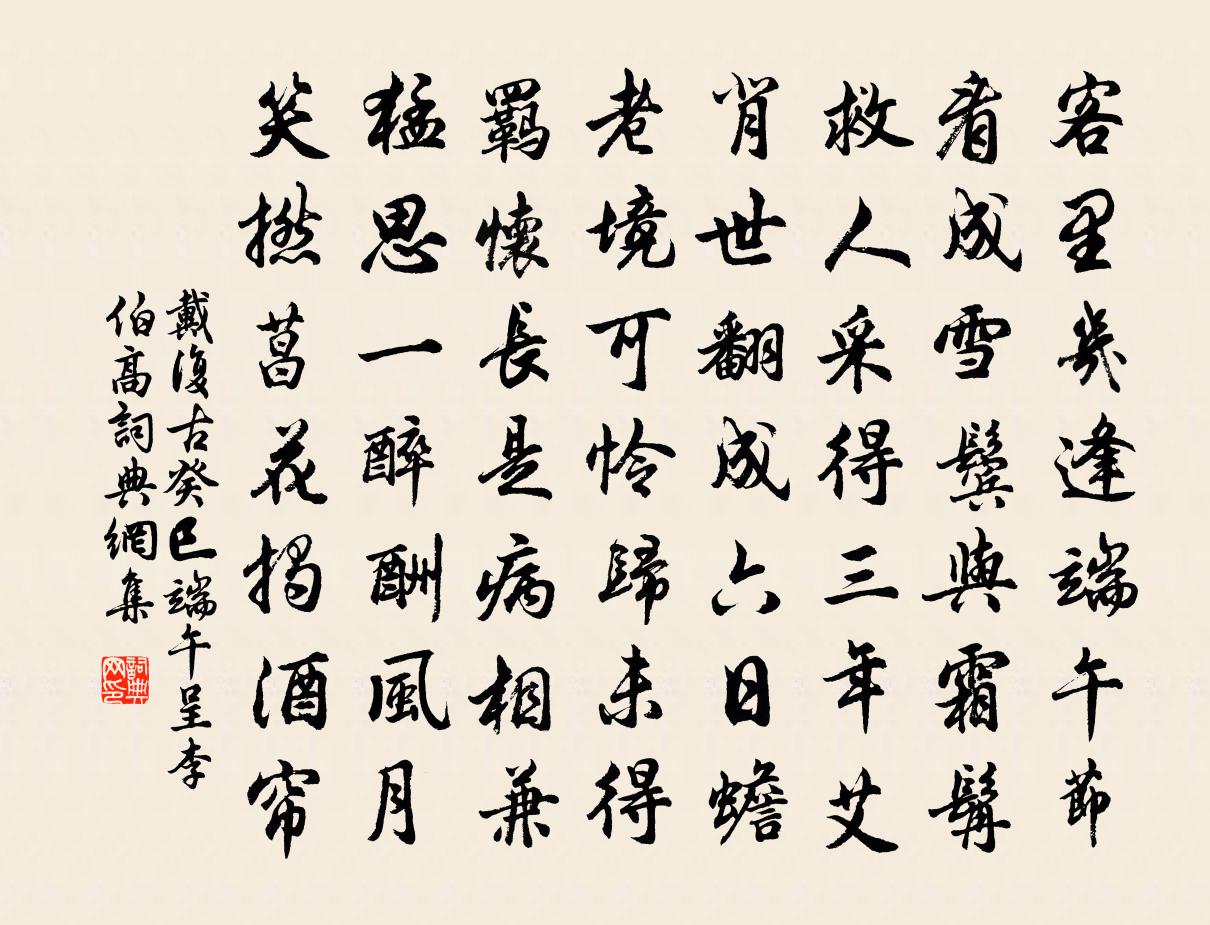 客里幾逢端午節
看成雪鬢與霜髯
救人采得三年艾
背世翻成六日蟾
老境可怜歸未得
羈懷長是病相兼
猛思一醉酬風月
笑撚菖花揭酒帘
戴復古癸巳端午呈李
伯高詞典網集
詞典
网印